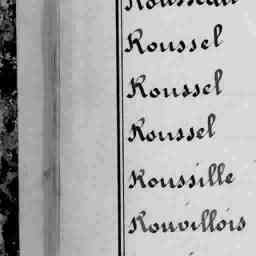 Rousseau
Roussel
Roussel
Roussel
Roussille
Rouvillois